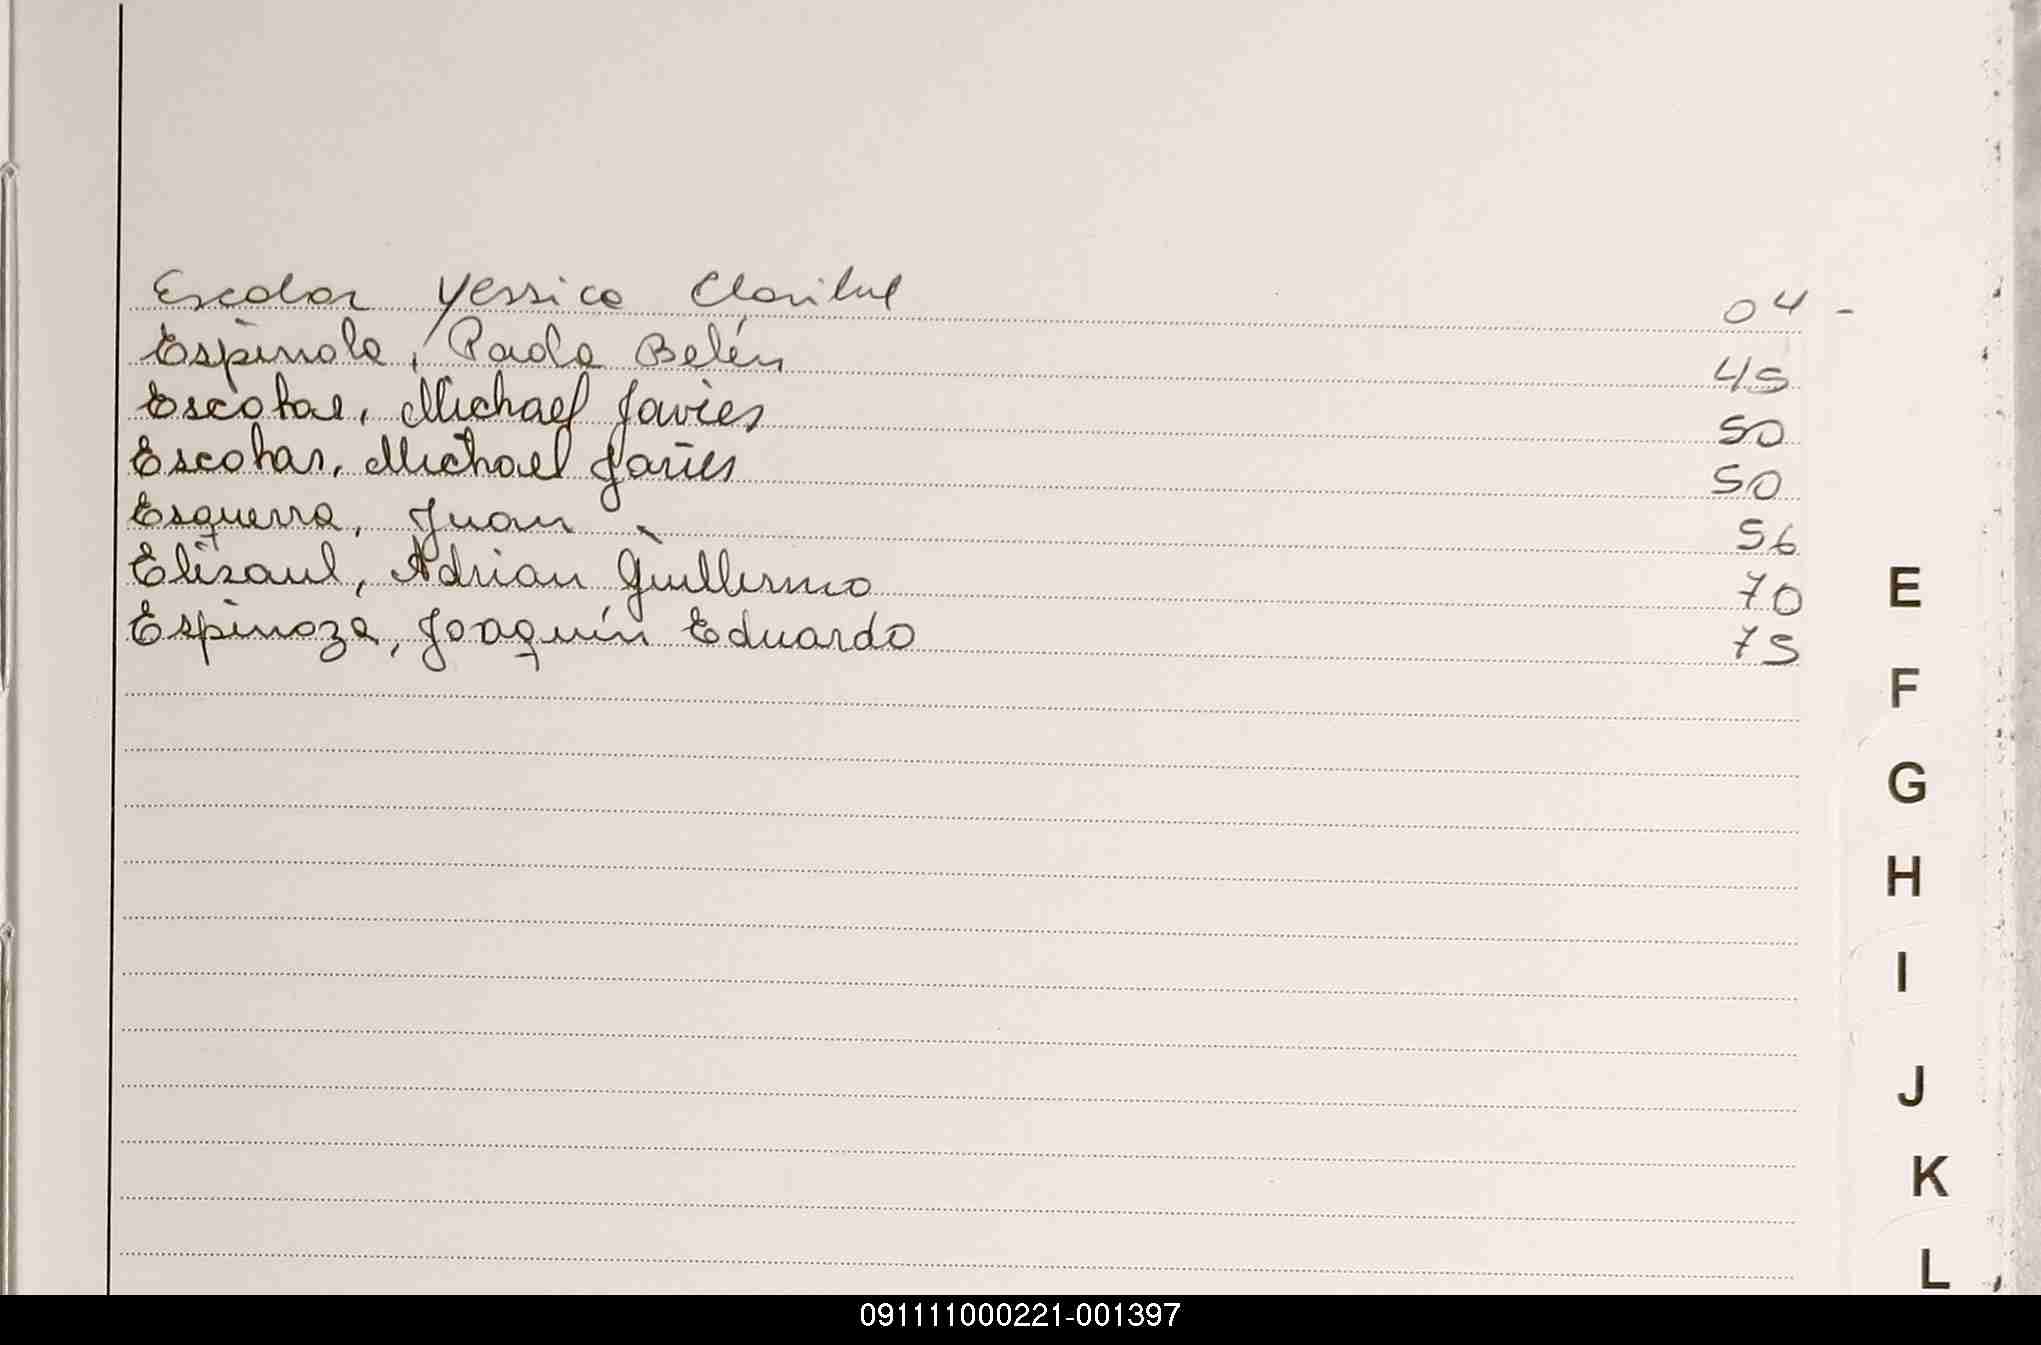 Escobar Yessica Claribel 04 -
Espinola, Paola Belén 45
Escobar, Michael Javier 50
Escobar, Michael Javier 50
Esquerra, Juan 56
Adrian Guillermo 70
Espinoza, Joaquín Eduardo 75
E
F
G
H
I
J
K
L
091111000221-001397